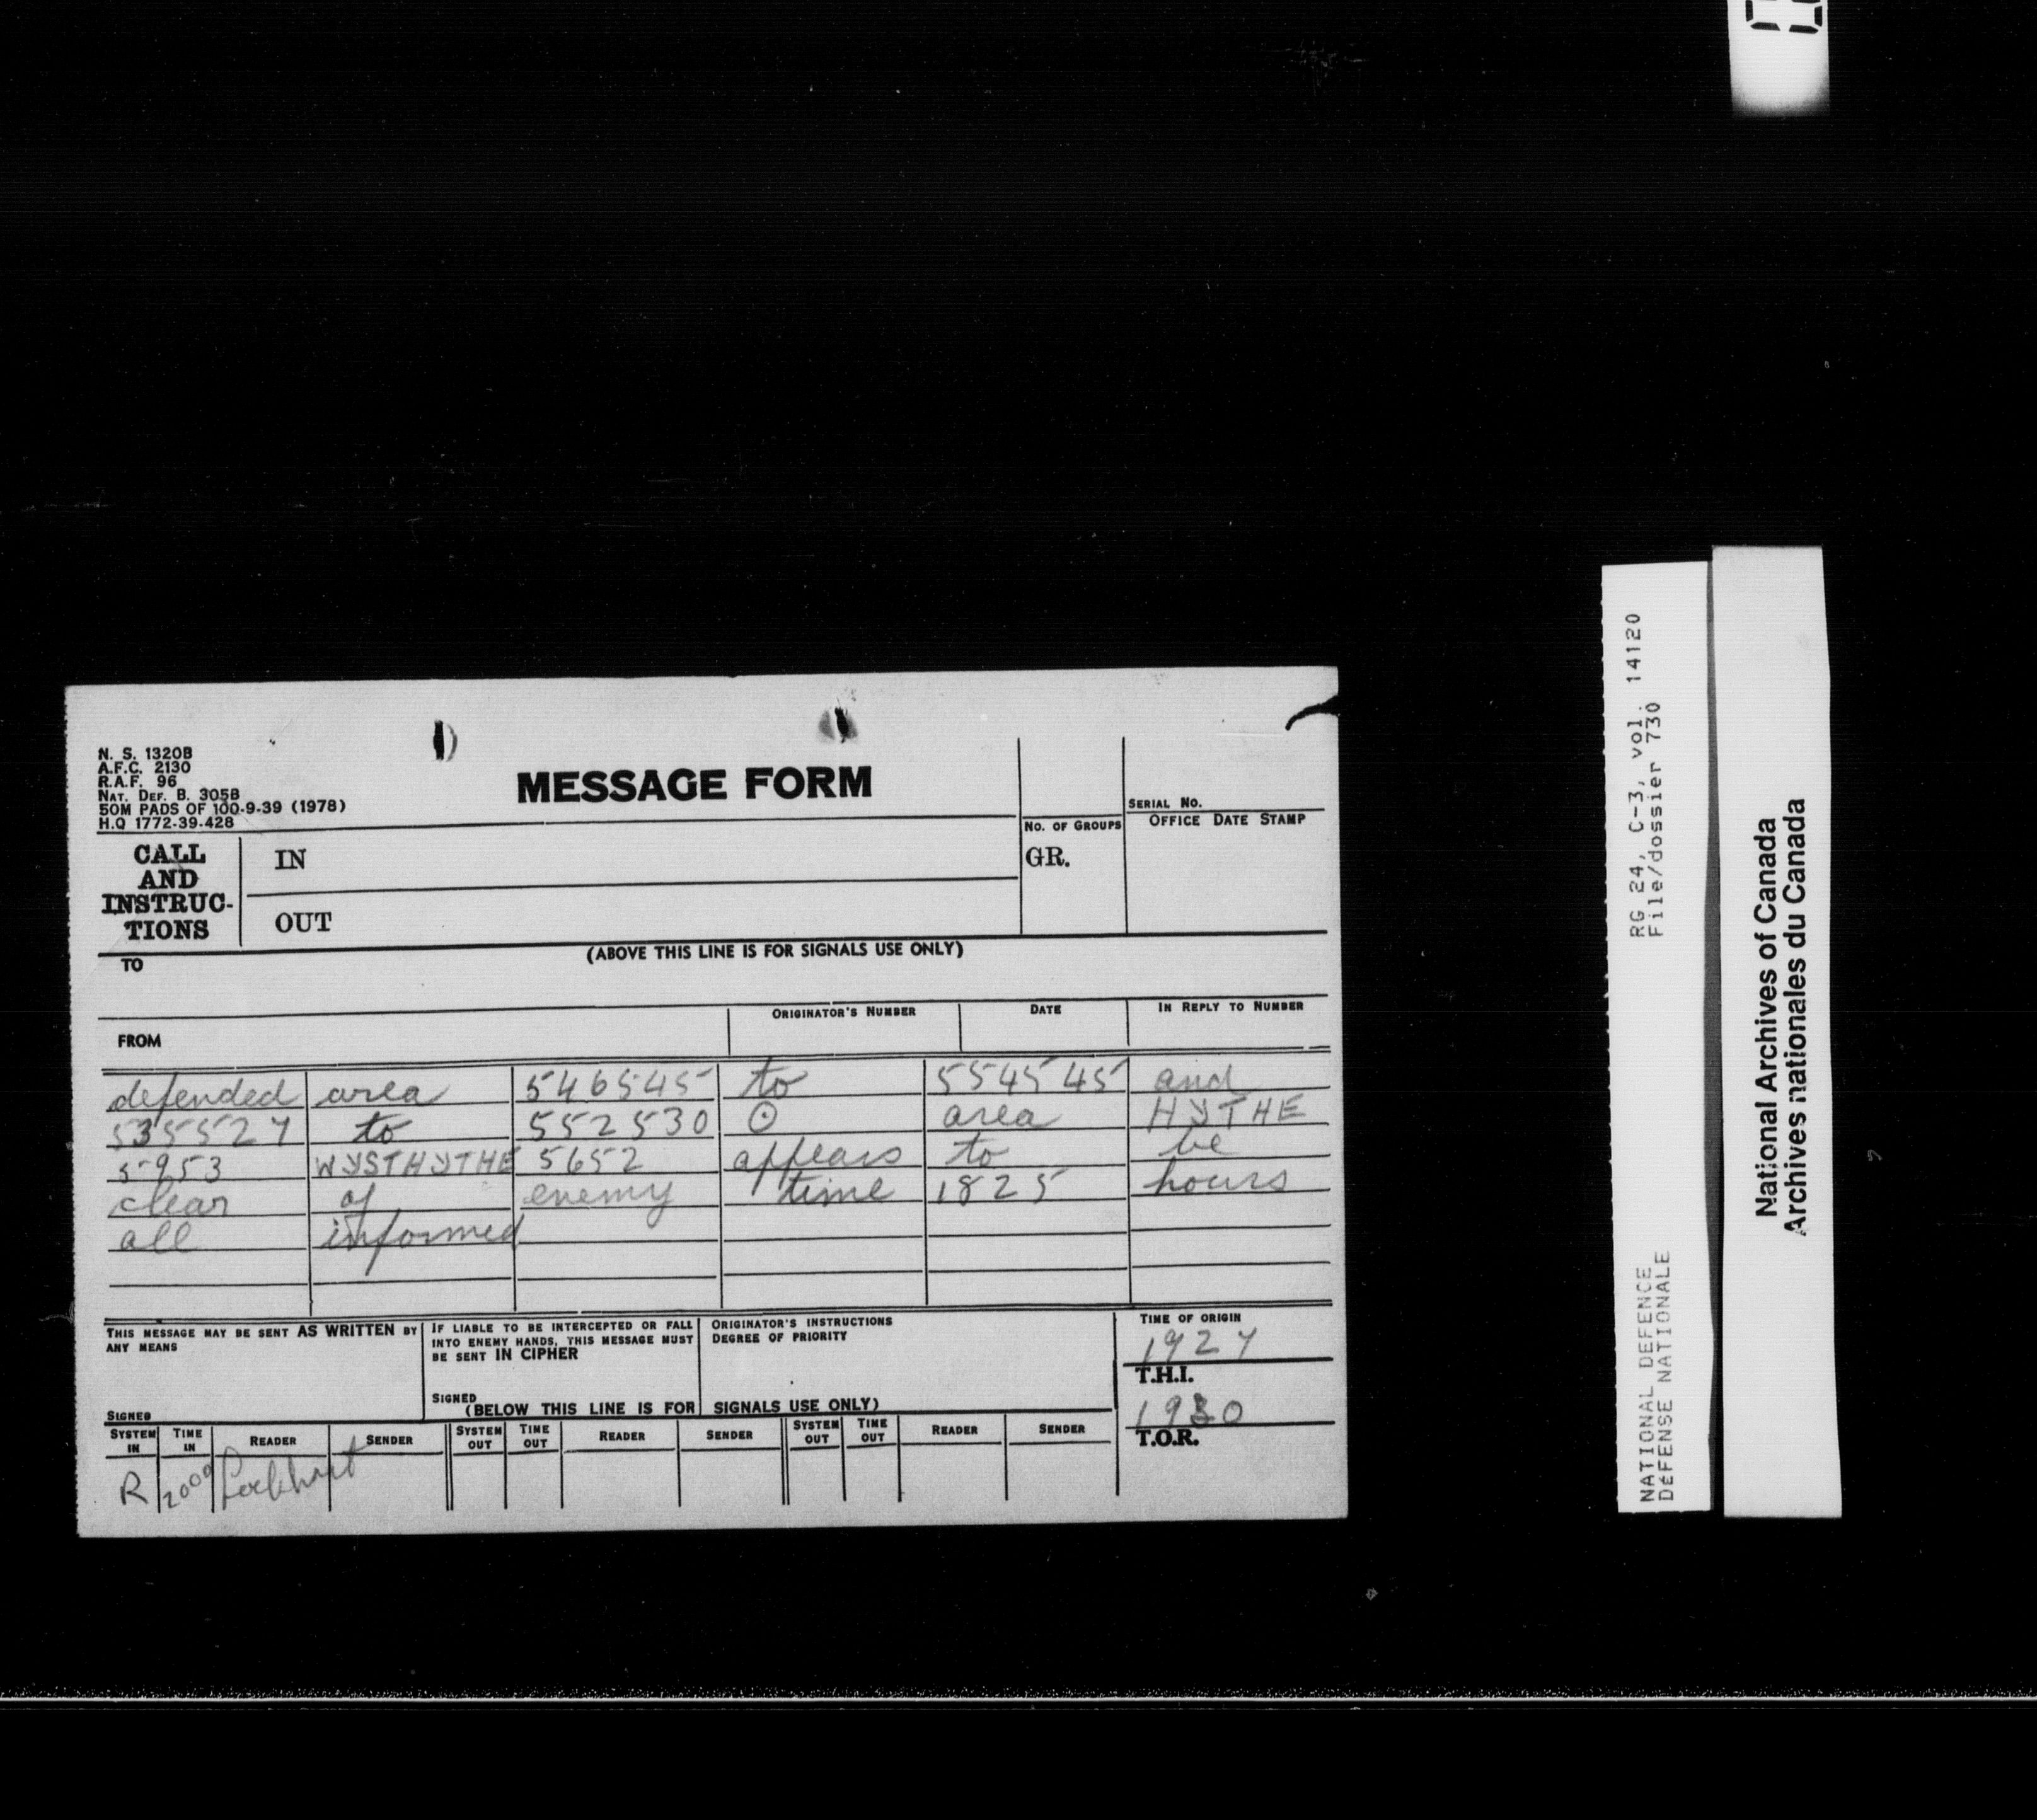 N. S. 1320B
A.F.C. 2130
R.A.F. 96
NAT. DEF. B. 305B
50M PADS OF 100-9-39 (1978)
H.Q 1772-39-428
MESSAGE FORM
NO. OF GROUPS
GR.
SERIAL NO.
OFFICE DATE STAMP
CALL AND INSTRUC-TIONS
IN
OUT
(ABOVE THIS LINE IS FOR SIGNALS USE ONLY)
TO
FROM
ORIGINATOR'S NUMBER
DATE
IN REPLY TO NUMBER
defended area 546545 to 554545 and
535527 to 552530 ⊙ area HYTHE
5953 WYSTHYTHE 5652 appears to be
clear of enemy time 1825 hours
all informed
THIS MESSAGE MAY BE SENT AS WRITTEN BY
ANY MEANS
SIGNED
IF LIABLE TO BE INTERCEPTED OR FALL
INTO ENEMY HANDS, THIS MESSAGE MUST
BE SENT IN CIPHER
SIGNED
ORIGINATOR'S INSTRUCTIONS
DEGREE OF PRIORITY
(BELOW THIS LINE IS FOR SIGNALS USE ONLY)
TIME OF ORIGIN
1927
T.H.I.
1930
T.O.R.
SYSTEM IN TIME IN READER SENDER SYSTEM OUT TIME OUT READER SENDER SYSTEM OUT TIME OUT READER SENDER
R 2000 Lockhart
RG 24, C-3, vol. 14120
File/dossier 730
NATIONAL DEFENCE
DéFENSE NATIONALE
National Archives of Canada
Archives nationales du Canada